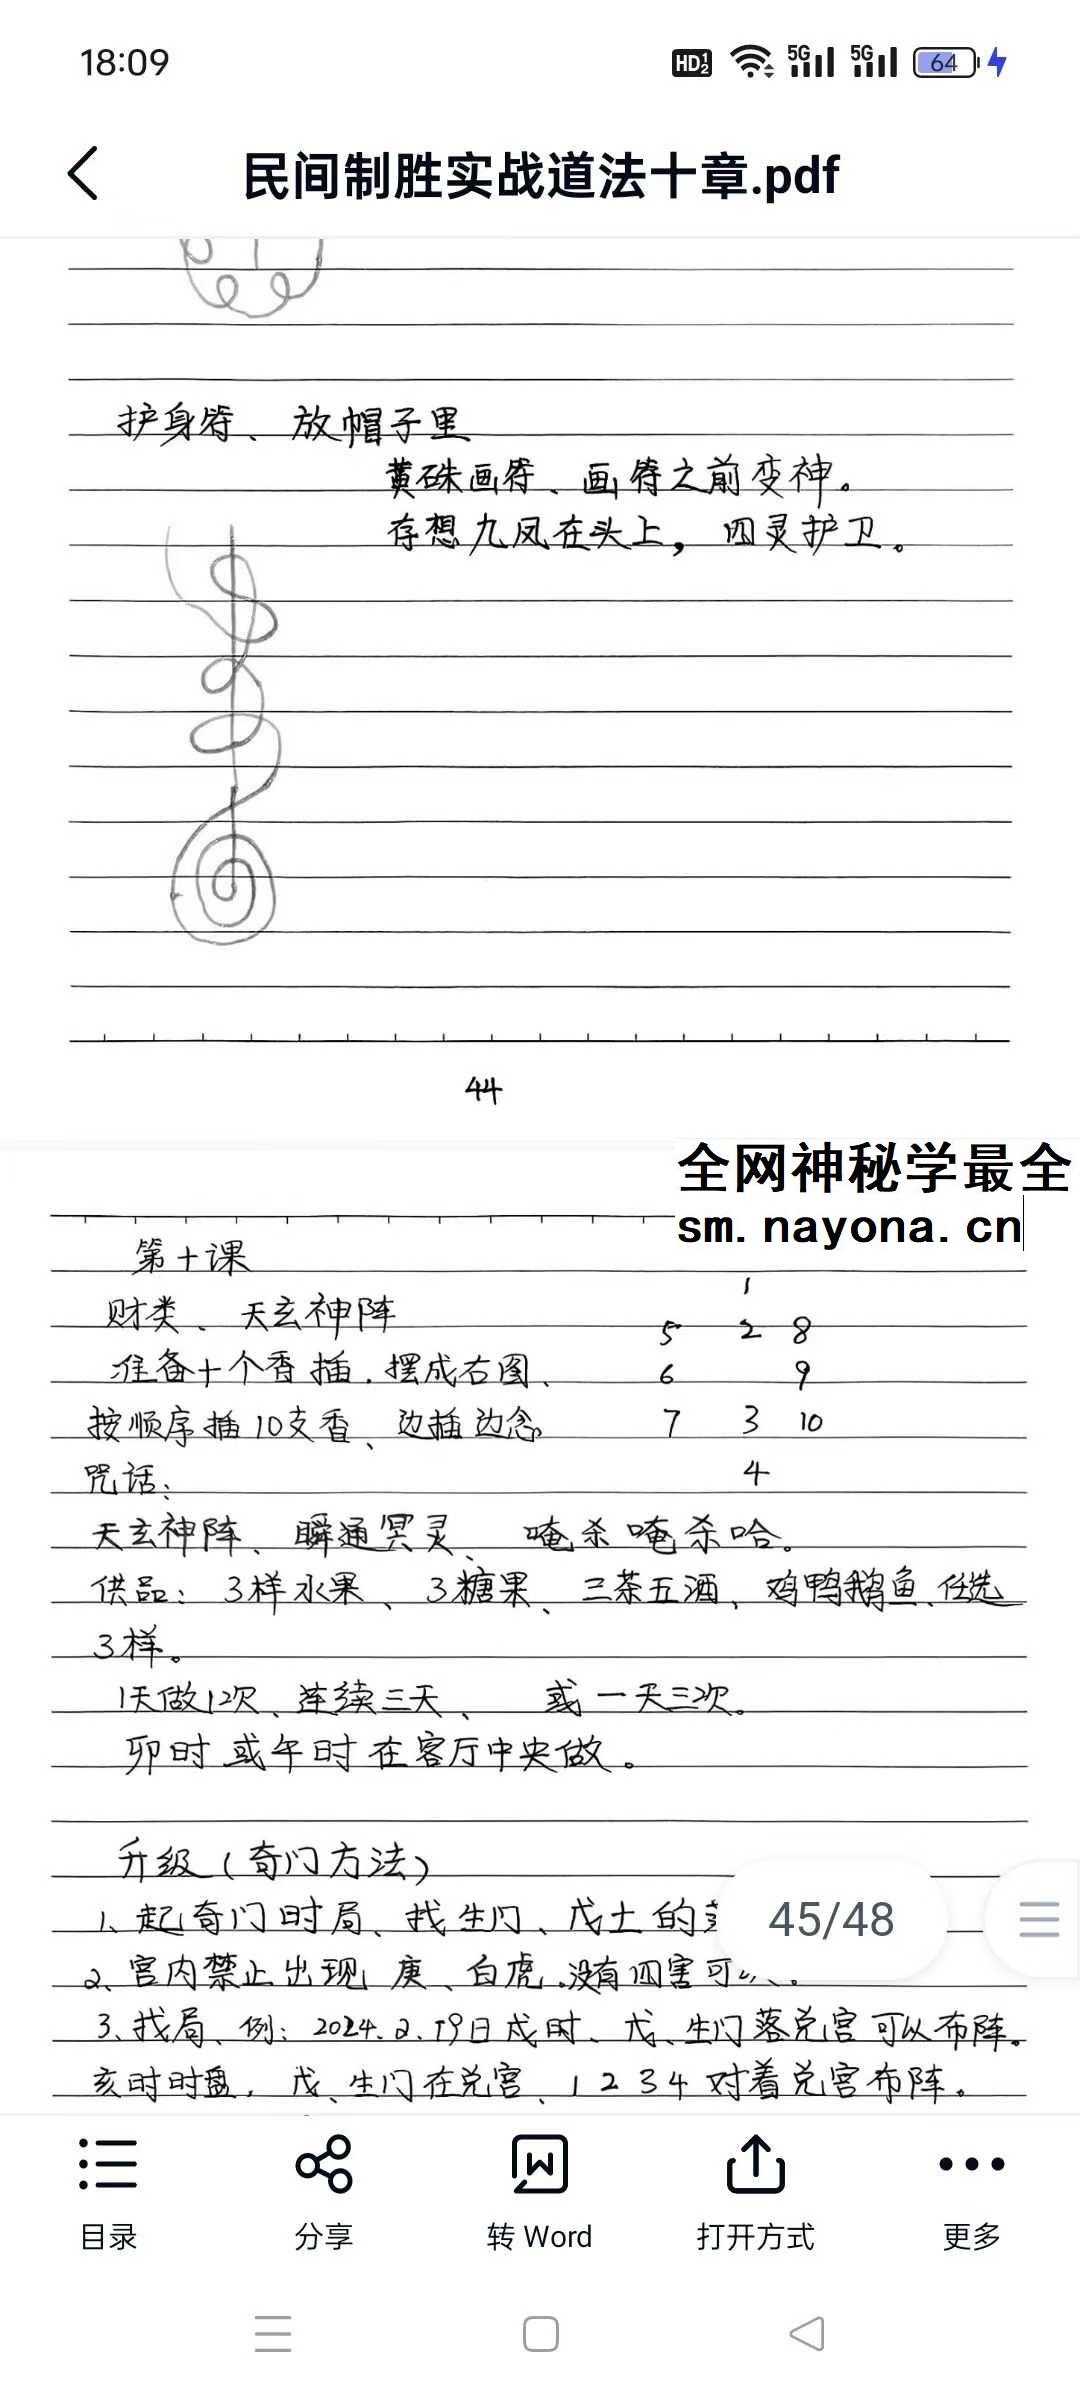 18:09
HD 1 2 5G 5G 64
民间制胜实战道法十章.pdf
护身符、放帽子里
黄硃画符、画符之前变神。
存想九凤在头上，四灵护卫。
44
全网神秘学最全
sm.nayona.cn
第十课
1
财类、天玄神阵
5 2 8
准备十个香插.摆成右图、
6 9
按顺序插10支香、边插边念
7 3 10
咒话:
4
天玄神阵、瞬通冥灵、唵杀唵杀哈。
供品: 3样水果、3糖果、三茶五酒、鸡鸭鹅鱼、任选
3样。
1天做1次、连续三天、 或一天三次。
卯时或午时在客厅中央做。
升级(奇门方法)
1、起奇门时局、找生门、戊土的
45/48
2、宫内禁止出现 庚、白虎.没有四害可
3、找局、例: 2024.2.19日戌时、戊、生门落兑宫可以布阵。
亥时时盘, 戊、生门在兑宫、1 2 3 4 对着兑宫布阵。
目录
分享
转 Word
打开方式
更多